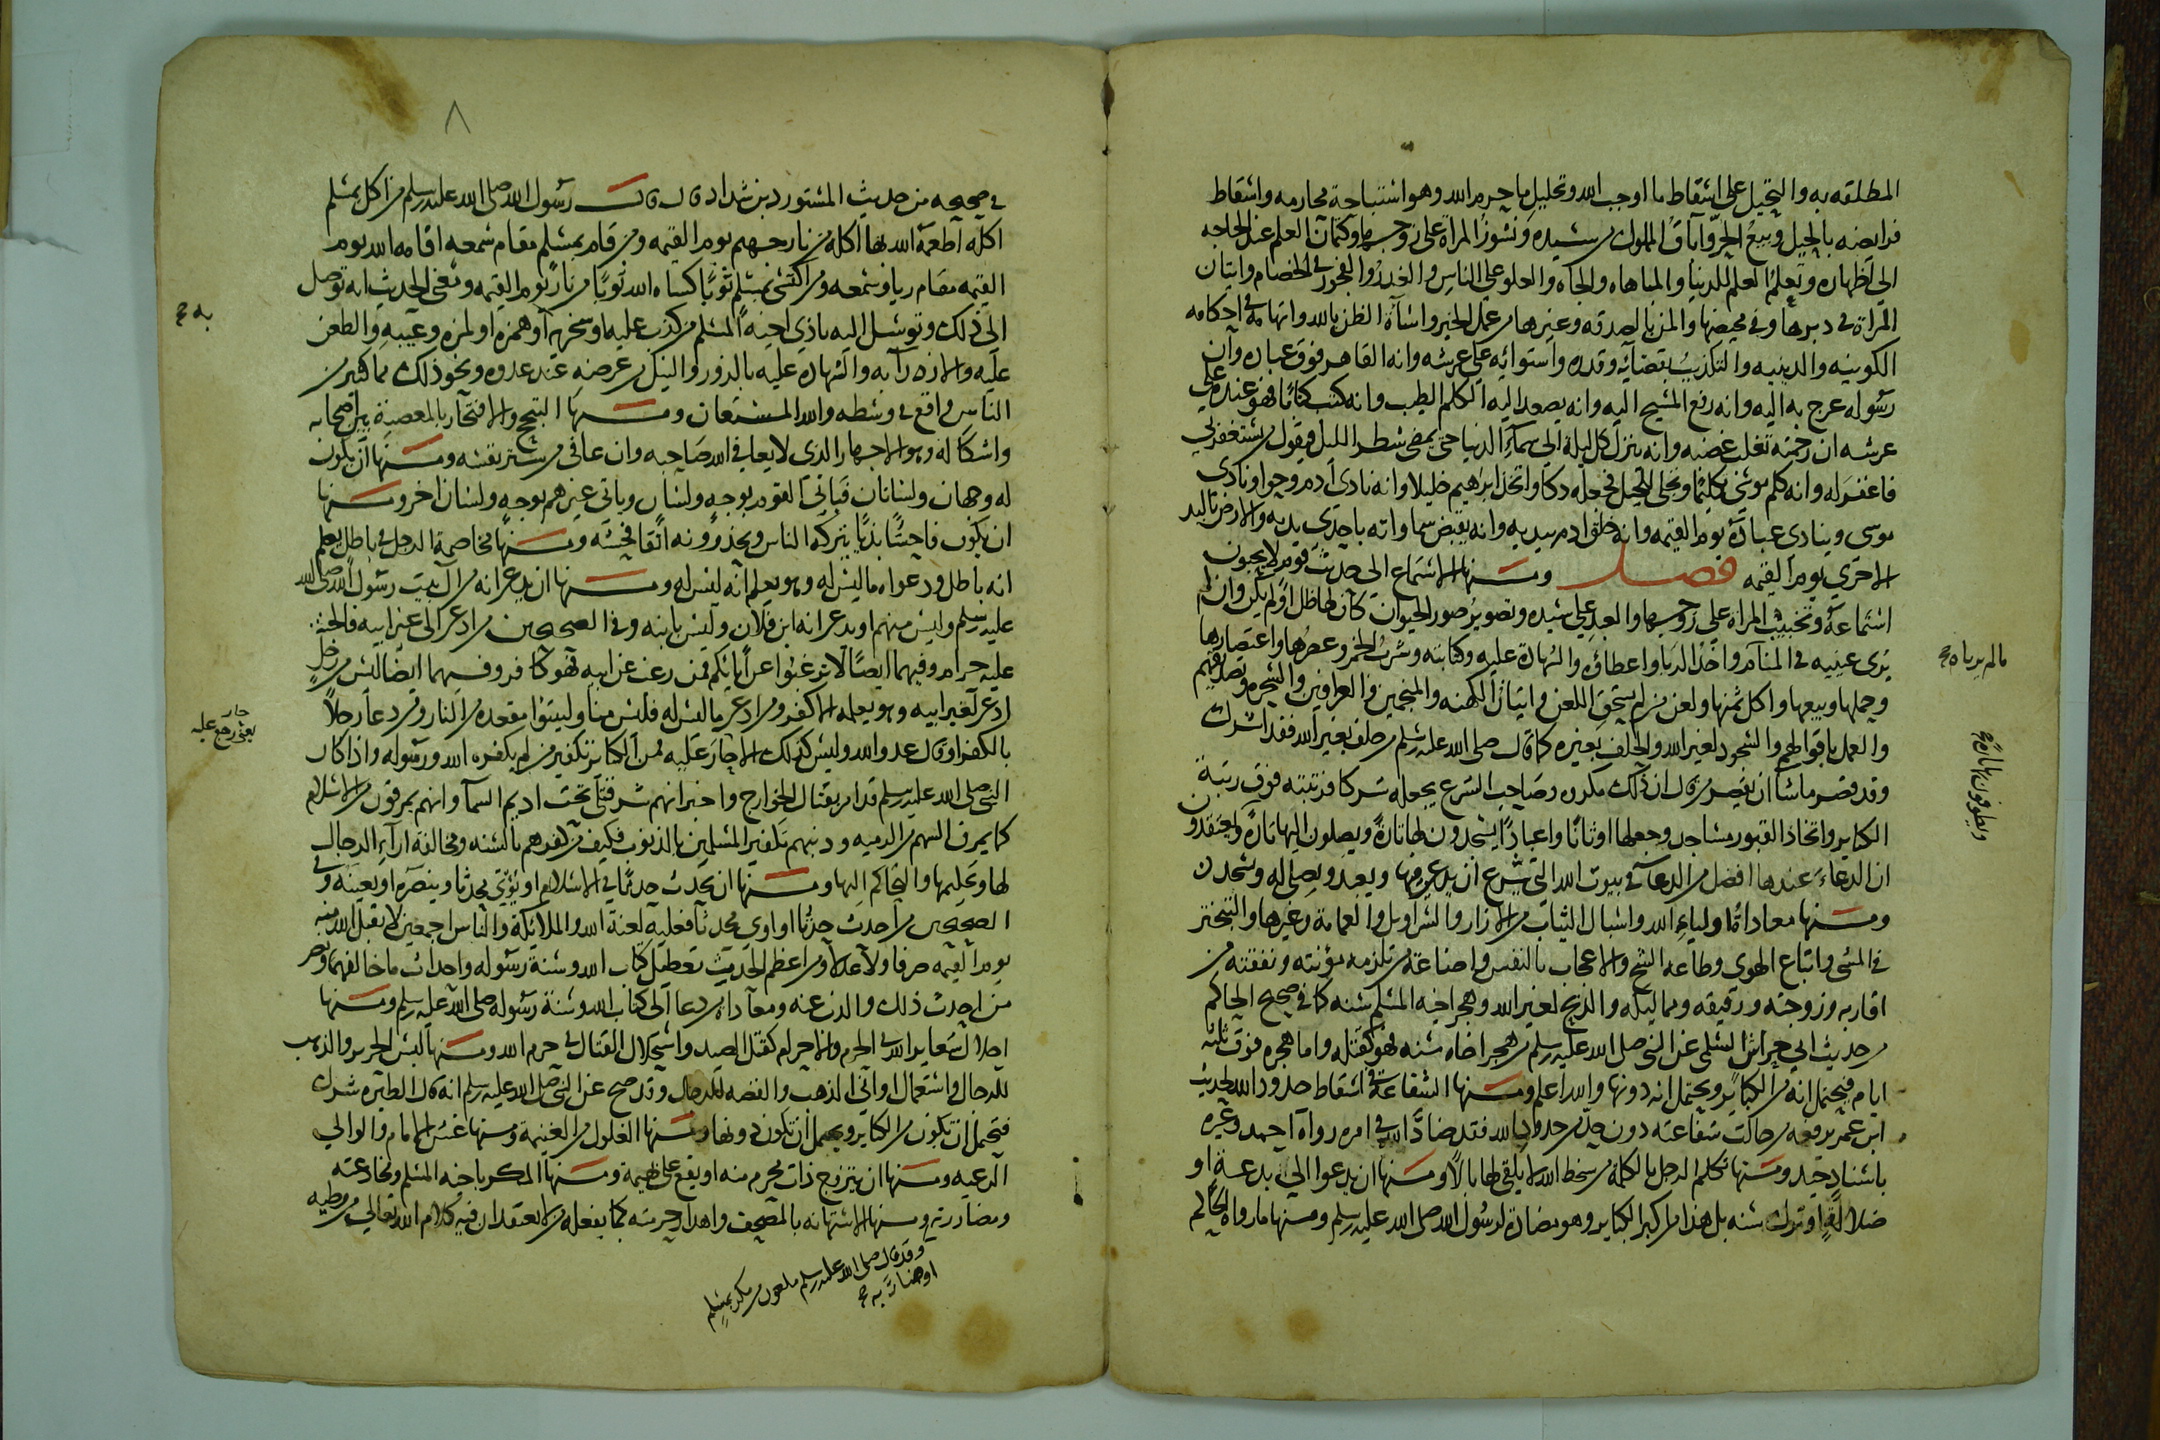 المطلقه به والتحيل على اسقاط ما اوجب الله وتحليل ما حرم الله وهو استباحة محارمه واسقاط
فرايضه بالحيل وبيع الحر واباق المملوك من سيده ونشوز المراة على زوجها وكتمان العلم عند الحاجه
الى اظهاره وتعلم العلم للدنيا والمباهاه والجاه والعلو على الناس والغدر والفجور في الخصام واتيان
المراة في دبرها وفي محيضها والمن بالصدقه وغيرها من عمل الخير واساة الظن بالله واتهامه في احكامه
الكونيه والدينيه والتكذيب بقضايه وقدره واستوايه على عرشه وانه القاهر فوق عباده وان
رسوله عرج به اليه وانه رفع المسيح اليه وانه يصعد اليه الكلم الطيب وانه كتب كتابا فهو عنده على
عرشه ان رحمته تغلب غضبه وانه ينزل كل ليلة الى سماء الدنيا حتى يمضي شطر الليل فيقول من يستغفرني
فاغفر له وانه كلم موسى تكليما وتجلى للجبل فجعله دكا واتخذ ابراهيم خليلا وانه نادى ادم وحوا ونادى
موسى وينادي عباده يوم القيمه وانه خلق ادم بيديه وانه يقبض سماواته باحدى يديه والارض باليد
الاخرى يوم القيمه فصل ومنها الاستماع الى حديث قوم لا يحبون
استماعه وتخبيب المراة على زوجها والعبد على سيده وتصوير صور الحيوان كان لها ظل او لم يكن وان
يرى عينيه في المنام واخذ الربا واعطاؤه والشهادة عليه وكتابته وشرب الخمر وعصرها واعتصارها
وحملها وبيعها واكل ثمنها ولعن من لم يستحق اللعن واتيان الكهنه والمنجمين والعرافين والسحره وتصديقهم
والعمل باقوالهم والسجود لغير الله والحلف بغيره كما قال صلى الله عليه وسلم من حلف بغير الله فقد اشرك
وقد قصر ما شا ان يقصر من قال ان ذلك مكروه وصاحب الشرع يجعله شركا فرتبته فوق رتبة
الكباير واتخاذ القبور مساجد وجعلها اوثانا واعيادا يسجدون لها تارة ويصلون اليها تارة ويعتقدون
ان الدعاء عندها افضل من الدعا في بيوت الله التي شرع ان يدعى فيها ويعبد ويصلى له ويسجد
ومنها معاداة اولياء الله واسبال الثياب من الازار والسراويل والعمامة وغيرها والتبختر
في المشي واتباع الهوى وطاعة الشح والاعجاب بالنفس واضاعة من تلزمه مؤنته ونفقته من
اقاربه وزوجته ورقيقه ومماليكه والذبح لغير الله وهجر اخيه المسلم سنه كما في صحيح الحاكم
من حديث ابي خراش السلمي عن النبي صلى الله عليه وسلم من هجر اخاه سنه فهو كقتله واما هجره فوق ثلثه
ايام فيحتمل انه من الكباير ويحتمل انه دونها والله اعلم ومنها الشفاعة في اسقاط حدود الله لحديث
ابن عمر يرفعه من حالت شفاعته دون حد من حدود الله فقد ضاد الله في امره رواه احمد وغيره
باسناد جيد ومنها تكلم الرجل بالكلمة من سخط الله لا يلقي لها بالا ومنها ان يدعوا الى بدعة او
ضلالة او ترك سنه بل هذا من اكبر الكباير وهو مضادة لرسول الله صلى الله عليه وسلم ومنها ما رواه الحاكم
ما لم يرياه صح
ويطوفون بها تارة صح
٨
في صحيحه من حديث المستورد بن شداد قال قال رسول الله صلى الله عليه وسلم من اكل بمسلم
اكلة اطعمه الله بها اكلة من نار جهنم يوم القيمه ومن قام بمسلم مقام سمعه اقامه الله يوم
القيمه مقام ريا وسمعه ومن اكتسى بمسلم ثوبا كساه الله ثوبا من نار يوم القيمه ومعنى الحديث انه توصل
الى ذلك وتوسل اليه باذى اخيه المسلم من كذب عليه او سخريه او همزه او لمزه وعيبه والطعن
عليه والازدرا به والشهادة عليه بالزور والنيل من عرضه عند عدوه ونحو ذلك مما كثير من
الناس واقع في وسطه والله المستعان ومنها التبجح والافتخار بالمعصية بين اصحابه
واشكاله وهو الاجهار الذي لا يعافي الله صاحبه وان عافى من ستر نفسه ومنها ان يكون
له وجهان ولسانان فياتي القوم بوجه ولسان وياتي غيرهم بوجه ولسان اخر ومنها
ان يكون فاحشا بذيا يتركه الناس ويحذرونه اتقا فحشه ومنها مخاصمة الرجل في باطل يعلم
انه باطل ودعواه ما ليس له وهو يعلم انه ليس له ومنها ان يدعي انه من ال بيت رسول الله صلى الله
عليه وسلم وليس منهم او يدعي انه ابن فلان وليس بابنه وفي الصحيحين من ادعى الى غير ابيه فالجنة
عليه حرام وفيهما ايضا لا ترغبوا عن ابايكم فمن رغب عن ابيه فهو كافر وفيهما ايضا ليس من رجل
ادعى لغير ابيه وهو يعلمه الا كفر ومن ادعى ما ليس له فليس منا وليتبوا مقعده من النار ومن دعا رجلا
بالكفر او قال عدو الله وليس كذلك الا حار عليه فمن الكباير تكفير من لم يكفره الله ورسوله واذا كان
النبي صلى الله عليه وسلم قد امر بقتال الخوارج واخبر انهم شر قتلى تحت اديم السما وانهم يمرقون من الاسلام
كما يمرق السهم من الرميه ودينهم تكفير المسلمين بالذنوب فكيف من كفرهم بالسنه ومخالفة اراء الرجال
لها وتحكيمها والتحاكم اليها ومنها ان يحدث حدثا في الاسلام او يؤوي محدثا وينصره او يعينه وفي
الصحيحين من احدث حدثا او اوى محدثا فعليه لعنة الله والملايكة والناس اجمعين لا يقبل الله منه
يوم القيمه صرفا ولا عدلا ومن اعظم الحديث تعطيل كتاب الله وسنة رسوله واحداث ما خالفهما ونصر
من احدث ذلك والذب عنه ومعاداة من دعا الى كتاب الله وسنة رسوله صلى الله عليه وسلم ومنها
احلال شعاير الله في الحرم والاحرام كقتل الصيد واستحلال القتال في حرم الله ومنها لبس الحرير والذهب
للرجال واستعمال اواني الذهب والفضه للرجال وقد صح عن النبي صلى الله عليه وسلم انه قال الطيره شرك
فتحتمل ان تكون من الكباير ويحتمل ان تكون دونها ومنها الغلول من الغنيمة ومنها غش الامام والوالي
الرعيه ومنها ان يتزوج ذات محرم منه او يقع على بهيمة ومنها المكر باخيه المسلم ومخادعته
ومضاررته ومنها الاستهانه بالمصحف واهدار حرمته كما يفعله من لا يعتقد ان فيه كلام الله تعالى من وطيه
وقد قال صلى الله عليه وسلم ملعون من مكر بمسلم
او ضار به صح
به صح
حار
يعني رجع عليه